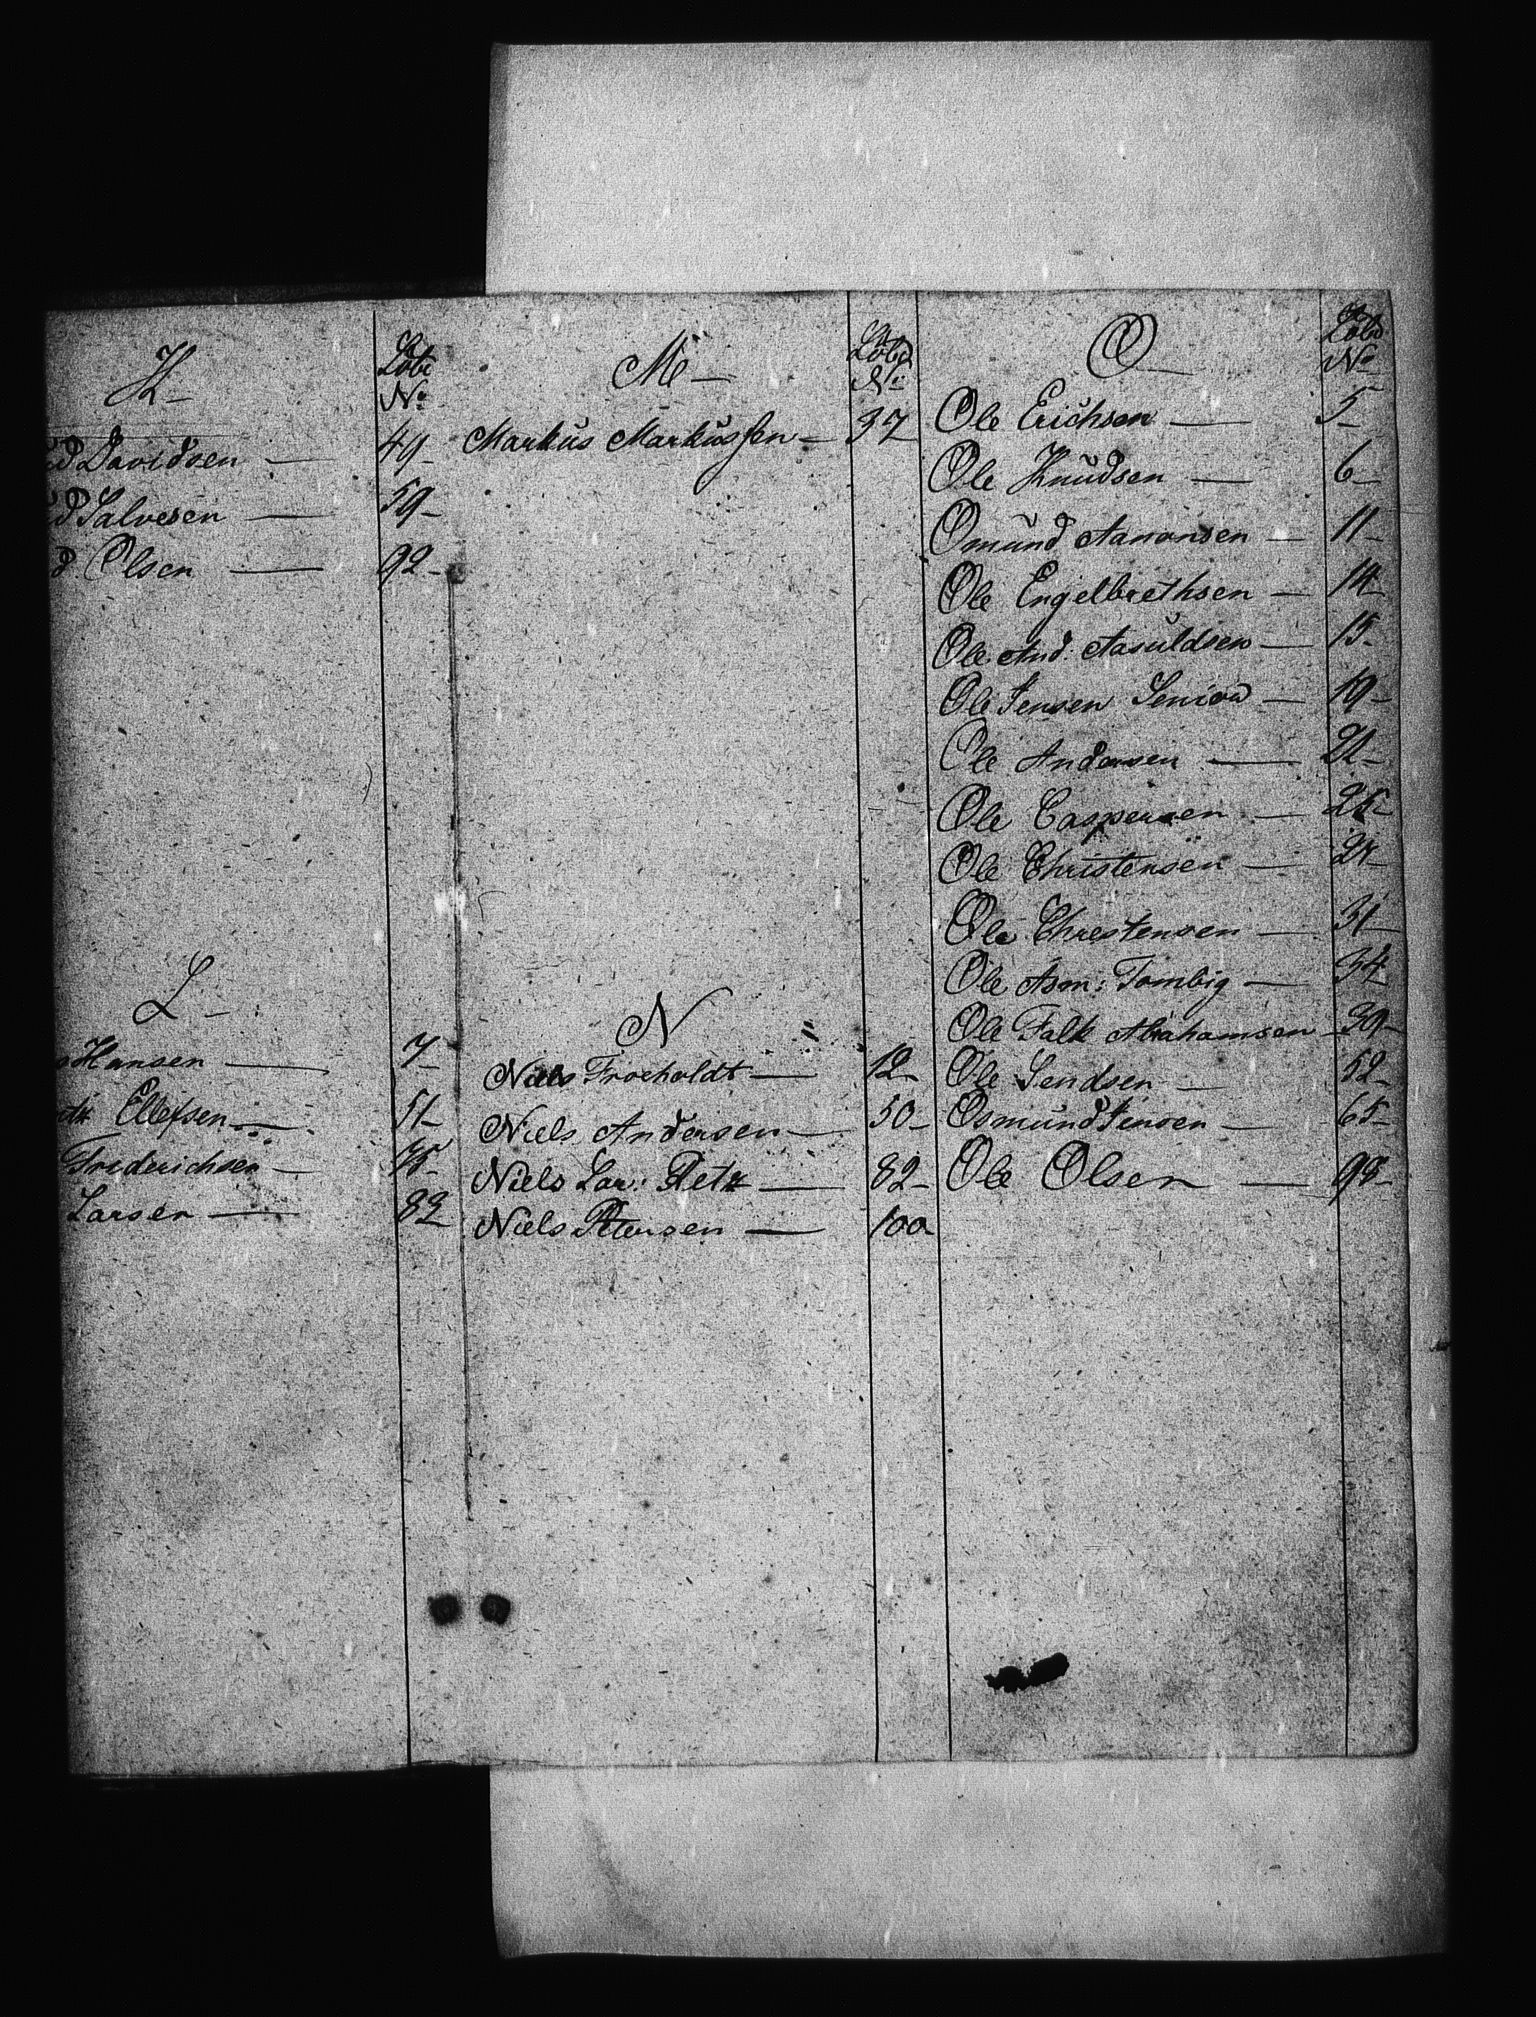 K
Løbe
No
ud Davidsen 49
ud Salvesen 59
d. Olsen 92
L
s Hansen 7
Ellefsen 51
Friderichsen 75
Larsen 82
M
Løbe
No
Markus Markussen 37
N
Niels Froeholdt 12
Niels Andersen 50
Niels Lar: Retz 82
Niels Petersen 100
O
Løbe
No
Ole Erichsen 5
Ole Knudsen 6
Omund Aanonsen 11
Ole Engelbrethsen 14
Ole And. Aasuldsen 15
Ole Jensen Senior 19
Ole Andersen 21
Ole Caspersen 25
Ole Christensen 27
Ole Chrestensen 31
Ole Asm: Tombig 34
Ole Falk Abrahamsen 39
Ole Sendsen 52
Osmund Jensen 65
Ole Olsen 98